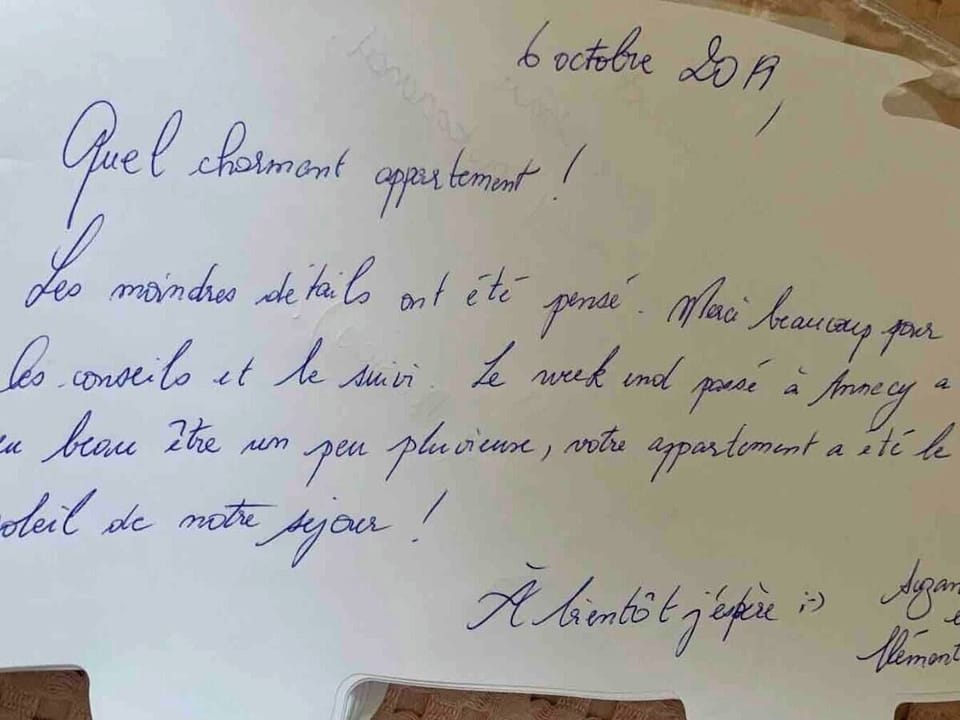 6 octobre 2019,
Quel charmant appartement !
Les moindres détails ont été pensé. Merci beaucoup pour
les conseils et le suivi. Le week end passé à Annecy a
eu beau être un peu pluvieux, votre appartement a été le
soleil de notre séjour !
À bientôt j'espère ;-)